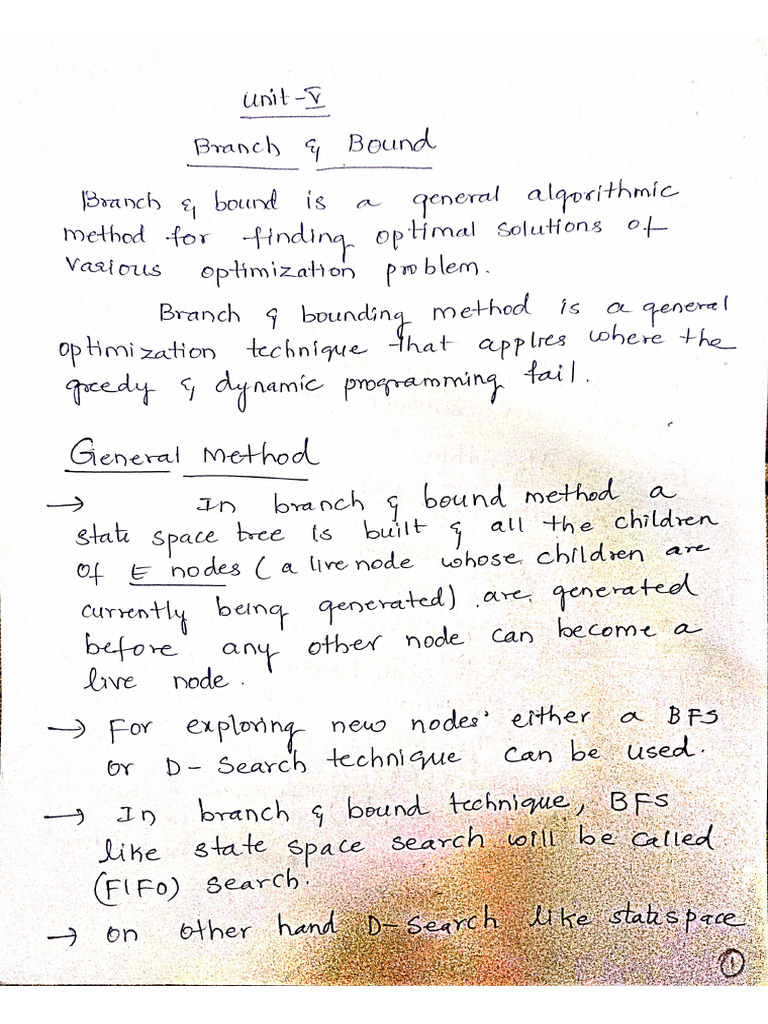 Unit-V
Branch & Bound
Branch & bound is a general algorithmic
method for finding optimal solutions of
various optimization problem.
Branch & bounding method is a general
optimization technique that applies where the
greedy & dynamic programming fail.
General Method
→ In branch & bound method a
state space tree is built & all the children
of E nodes (a live node whose children are
currently being generated) are generated
before any other node can become a
live node.
→ For exploring new nodes either a BFS
or D-Search technique can be used.
→ In branch & bound technique, BFS
like state space search will be called
(FIFO) search.
→ on other hand D-Search like state space
1